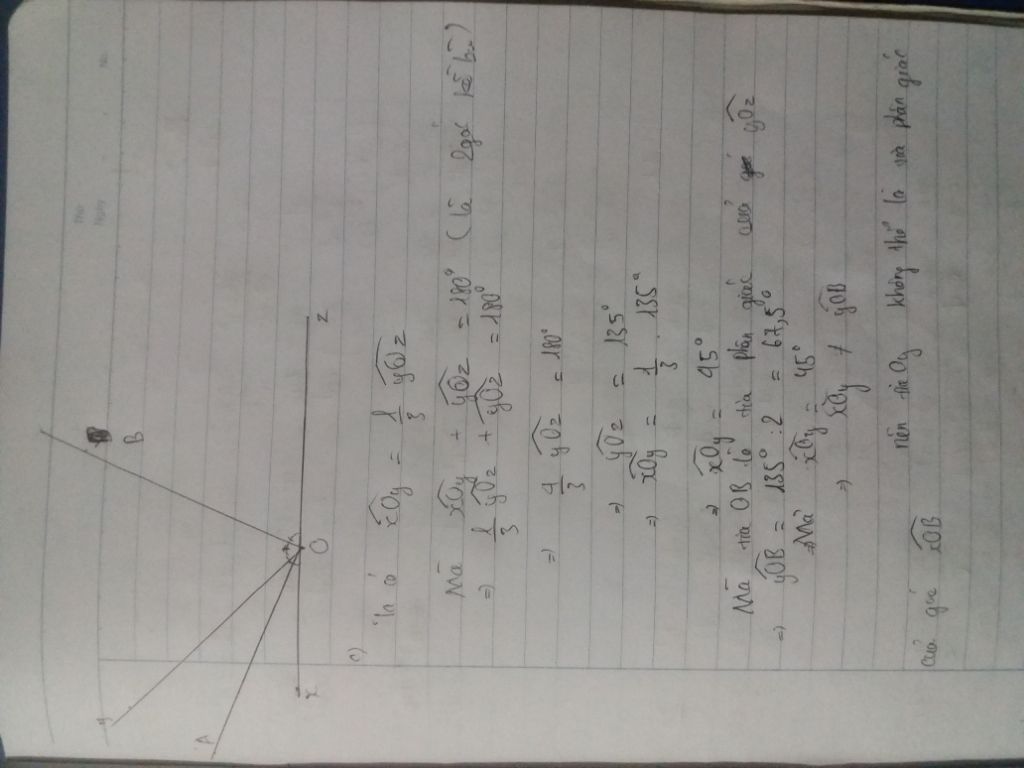 Thứ
Ngày
No.
y
A
B
x
O
z
c) Ta có xOy = 1/3 yOz
Mà xOy + yOz = 180° (là 2 góc kề bù)
=> 1/3 yOz + yOz = 180°
=> 4/3 yOz = 180°
=> yOz = 135°
=> xOy = 1/3 . 135°
=> xOy = 45°
Mà tia OB là tia phân giác của yOz
=> yOB = 135° : 2 = 67,5°
=> Mà xOy = 45°
=> xOy ≠ yOB
nên tia Oy không thể là tia phân giác
của góc xOB